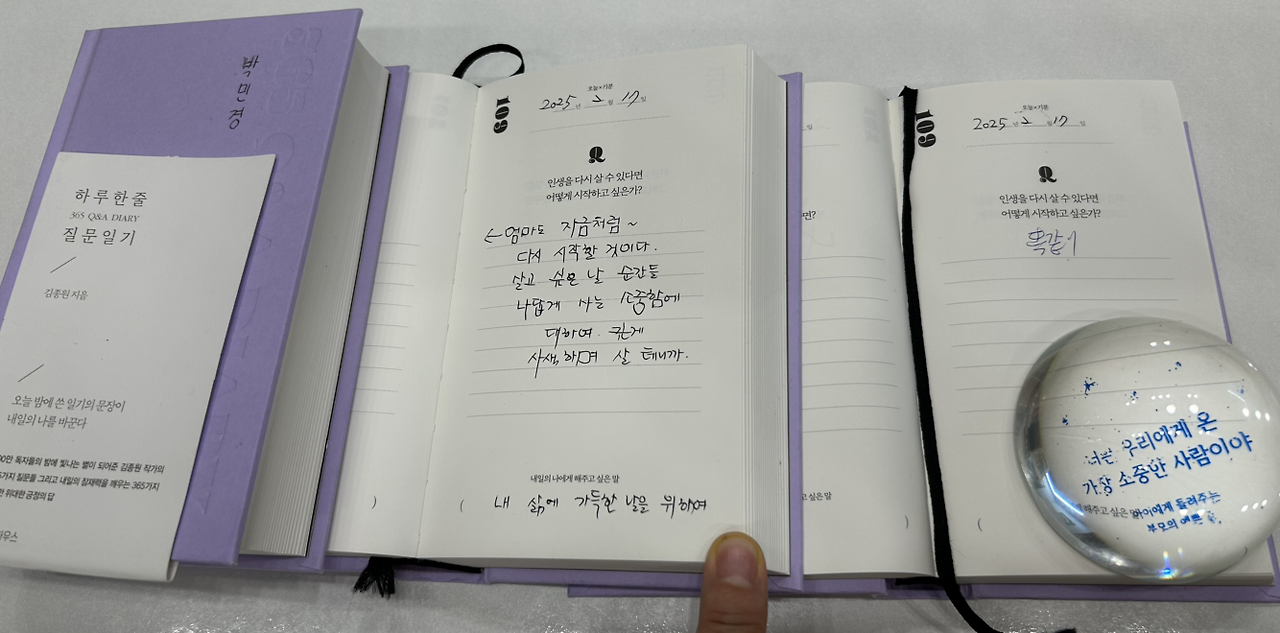 박민경
하루한줄
365 Q&A DIARY
질문일기
김종원 지음
오늘 밤에 쓴 일기의 문장이
내일의 나를 바꾼다
00만 독자들의 밤에 빛나는 별이 되어준 김종원 작가의
가지 질문들 그리고 내일의 잠재력을 깨우는 365가지
위대한 긍정의 답
109
오늘×기분
2025년 2월 17일
Q
인생을 다시 살 수 있다면
어떻게 시작하고 싶은가?
←엄마도 지금처럼~
다시 시작할 것이다.
살고 싶은 날 순간들
나답게 사는 소중함에
대하여 깊게
사색하며 살 테니까.
내일의 나에게 해주고 싶은 말
( 내 삶에 가득한 날을 위하여
)
면?
고 싶은 말
)
109
오늘×기분
2025년 2월 17일
Q
인생을 다시 살 수 있다면
어떻게 시작하고 싶은가?
똑같이
너는 우리에게 온
가장 소중한 사람이야
해주고 싶은
아이에게 들려주는
부모의 예쁜
(